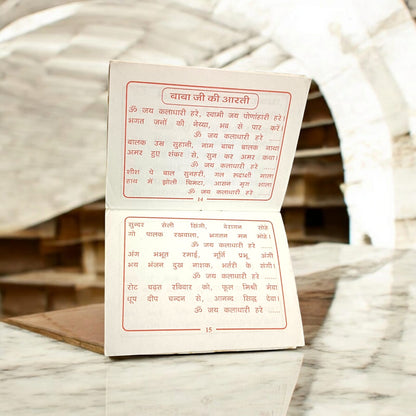 बाबा जी की आरती
ॐ जय कलाधारी हरे, स्वामी जय पौणाहारी हरे।
भगत जनों की नैय्या, भव से पार करें।
ॐ जय कलाधारी हरे ....
बालक उम्र सुहानी, नाम बाबा बालक नाथा
अमर हुए शंकर से, सुन कर अमर कथा।
ॐ जय कलाधारी हरे ....
शीश पे बाल सुनहरी, गल रूद्राक्षी माला
हाथ में झोली चिमटा, आसन मृग शाला
ॐ जय कलाधारी हरे ....
14
सुन्दर सेली सिंगी, वैरागन सोहे
गौ पालक रखवाला, भगतन मन मोहे।
ॐ जय कलाधारी हरे ....
अंग भभूत रमाई, मूर्ति प्रभू अंगी
भय भंजन दुख नाशक, भर्तरी के संगी।
ॐ जय कलाधारी हरे ....
रोट चढ़त रविवार को, फूल मिश्री मेवा
धूप दीप चन्दन से, आनन्द सिद्ध देवा।
ॐ जय कलाधारी हरे ....
15